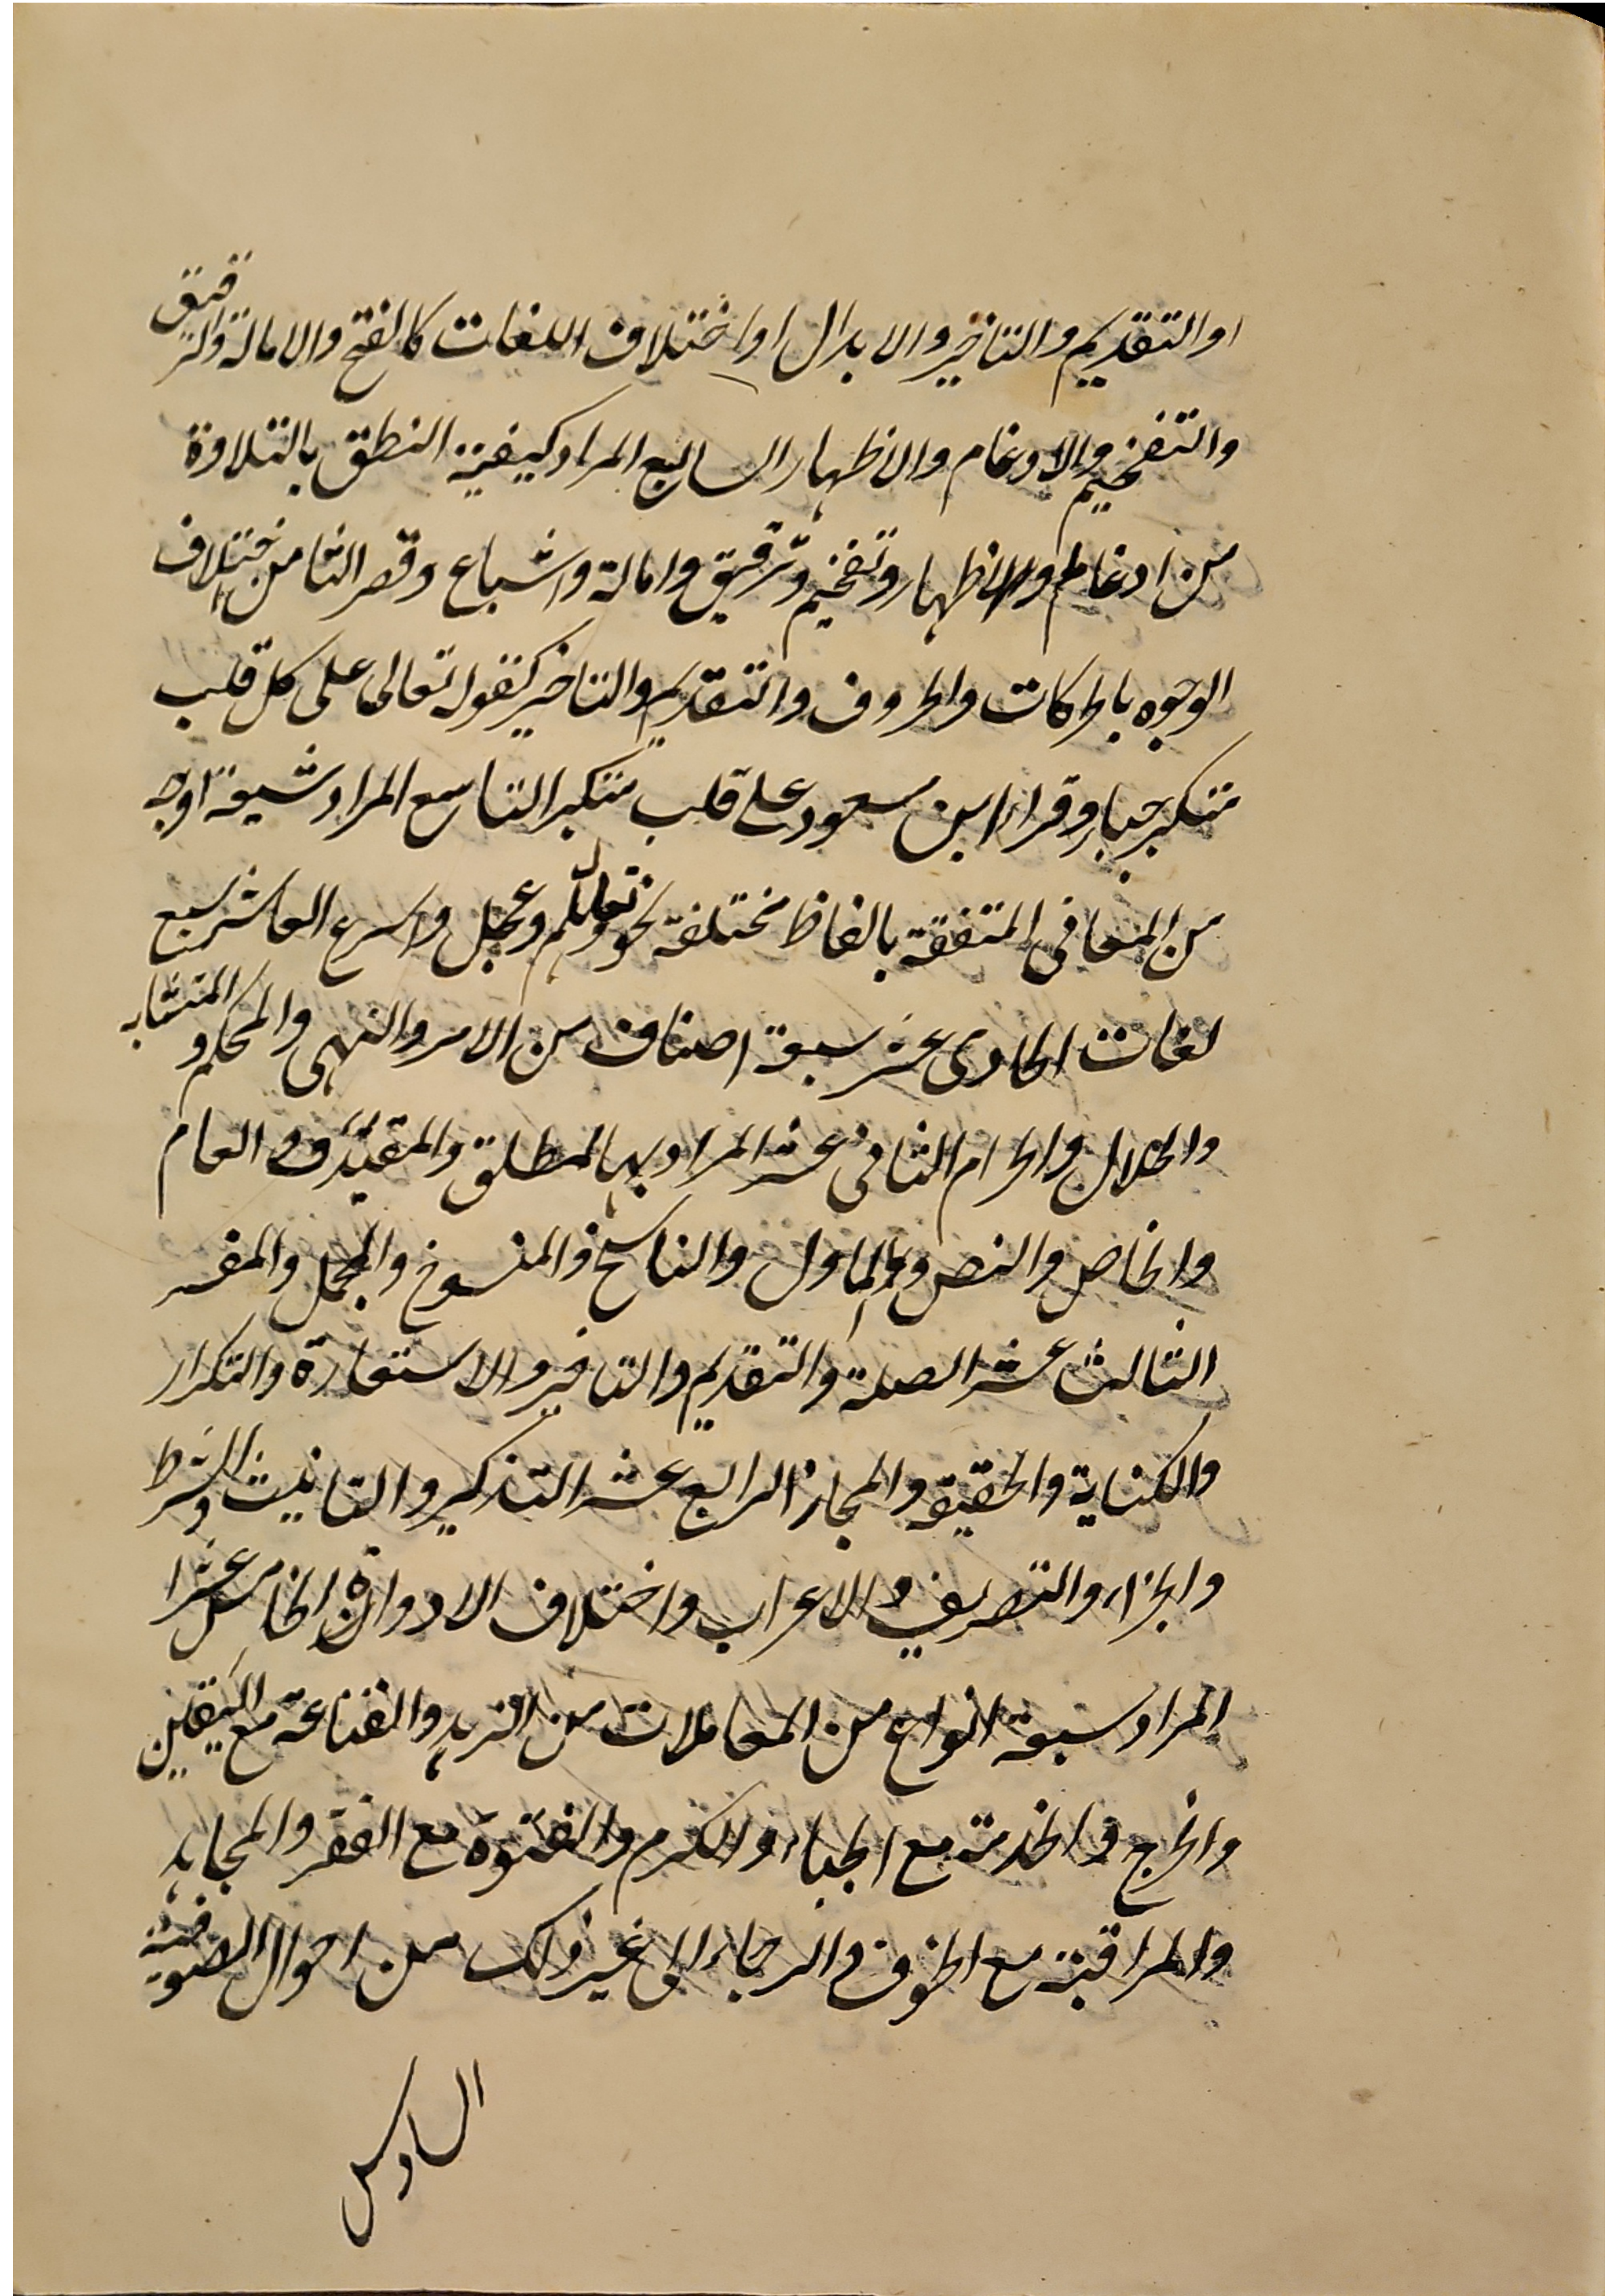 او التقديم والتاخير والابدال او اختلاف اللغات كالفتح والامالة والترقيق
والتفخيم والادغام والاظهار السابع المراد كيفية النطق بالتلاوة
من ادغام والاظهار وتفخيم وترقيق وامالة واشباع وقصر الثامن اختلاف
الوجوه بالحركات والحروف والتقديم والتاخير كقوله تعالى على كل قلب
متكبر جبار وقراء ابن مسعود على قلب متكبر التاسع المراد سبعة اوجه
من المعانى المتفقة بالفاظ مختلفة نحو تعال وهلم وعجل واسرع العاشر سبع
لغات الحادى عشر سبعة اصناف من الامر والنهى والمحكم والمتشابه
والحلال والحرام الثانى عشر المراد بها المطلق والمقيد و العام
والخاص والنص والماول والناسخ والمنسوخ والمجمل والمفسر
الثالث عشر الصلة والتقديم والتاخير والاستعارة والتكرار
والكناية والحقيقة والمجاز الرابع عشر التذكير والتانيث والشرط
والجزاء والتصريف والاعراب واختلاف الادوات الخامس عشر
المراد سبعة انواع من المعاملات من الزهد والقناعة مع اليقين
والخرج والخدمة مع الحياء والكرم والفتوة مع الفقر والمجاهدة
والمراقبة مع الخوف والرجاء الى غير ذلك من احوال الصوفية
السادس